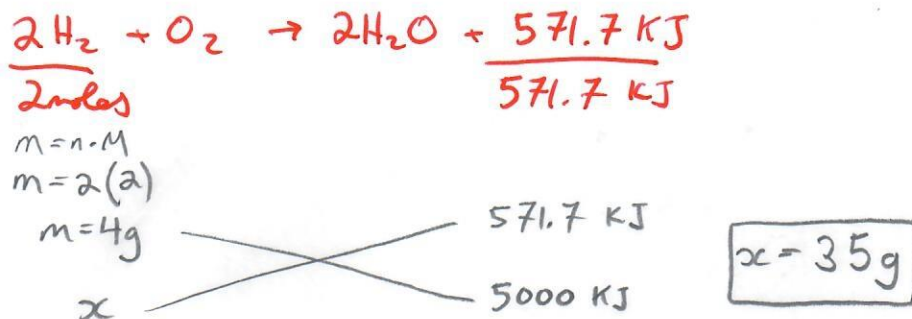 2H₂ + O₂ → 2H₂O + 571.7 KJ
2moles 571.7 KJ
m=n·M
m=2(2)
m=4g 571.7 KJ
x 5000 KJ
x = 35g